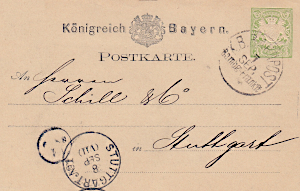 Königreich Bayern.
POSTKARTE.
An Herrn
Schill & Co
in
Stuttgart
STUTTGART
8
SEP